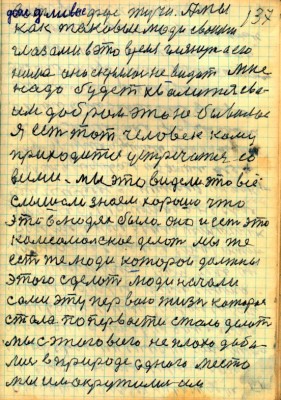 дождливые тучи. А мы 137
как таковые люди своими
глазами в это время глянули а его
нима оно скрылось не видат мне
надо будет хвалится сво
им добром это не бывалое
Я ест этот человек кому
приходится устречатся со
всеми. мы это видели это все
слышали знаем хорошо что
это в людях было оно и ест это
камсамолское дело мы же
ест те люди которои должны
этого сделат люди начали
сами эту первою жизн которая
стала по первости стало делат
мы с этого всего не плохо доба
лис в природе одного место
мы им окружилис им